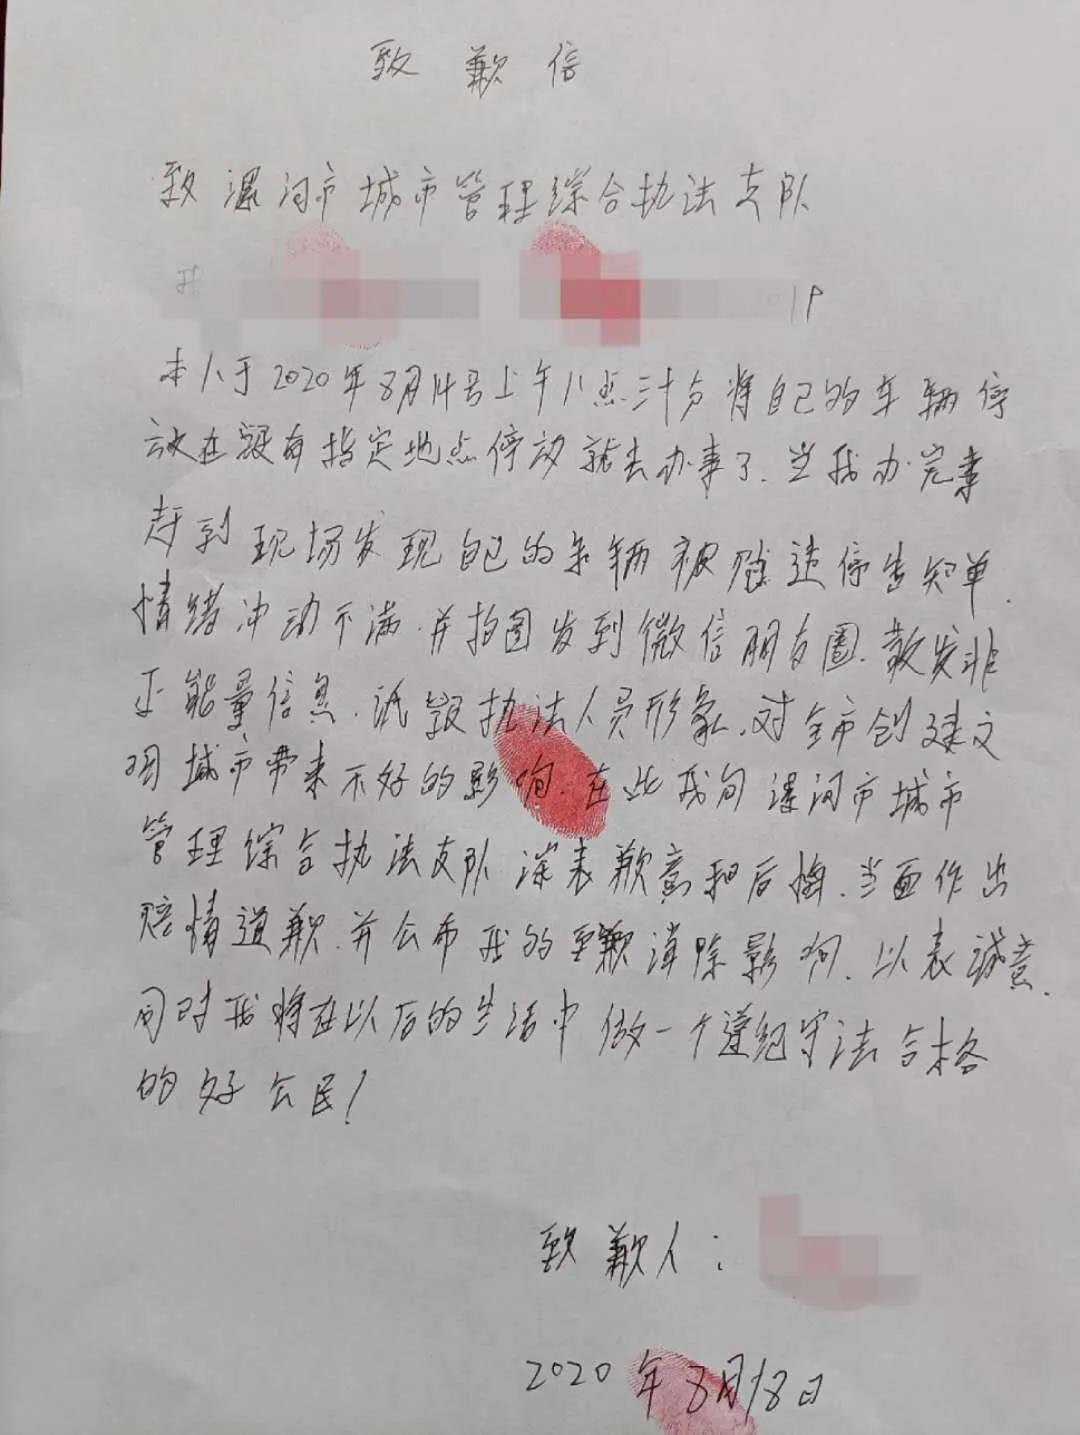 致歉信
致漯河市城市管理综合执法支队
我
本人于2020年8月14号上午八点三十分将自己的车辆停
放在没有指定地点停放就去办事了.当我办完事
赶到现场发现自己的车辆被贴违停告知单.
情绪冲动不满.并拍图发到微信朋友圈.散发非
正能量信息.诋毁执法人员形象.对全市创建文
明城市带来不好的影响.在此我向漯河市城市
管理综合执法支队深表歉意和后悔.当面作出
赔情道歉.并公布我的致歉消除影响.以表诚意.
同时我将在以后的生活中做一个遵纪守法合格
的好公民!
致歉人:
2020年8月18日